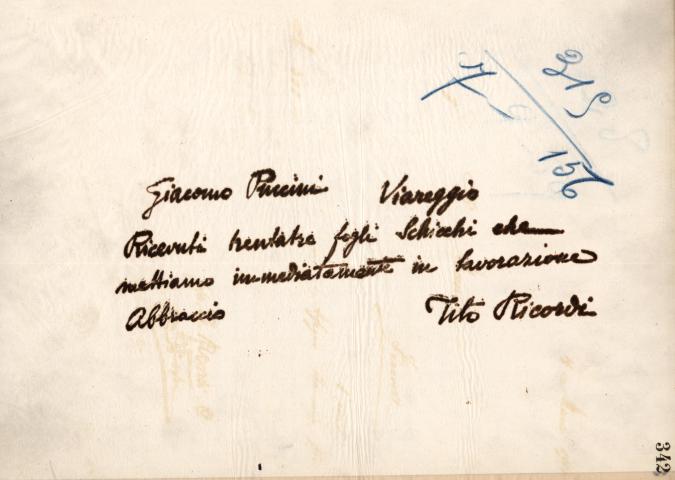 215
156
Giacomo Puccini Viareggio
Ricevuti trentatre fogli Schicchi che
mettiamo immediatamente in lavorazione
Abbraccio Tito Ricordi
342